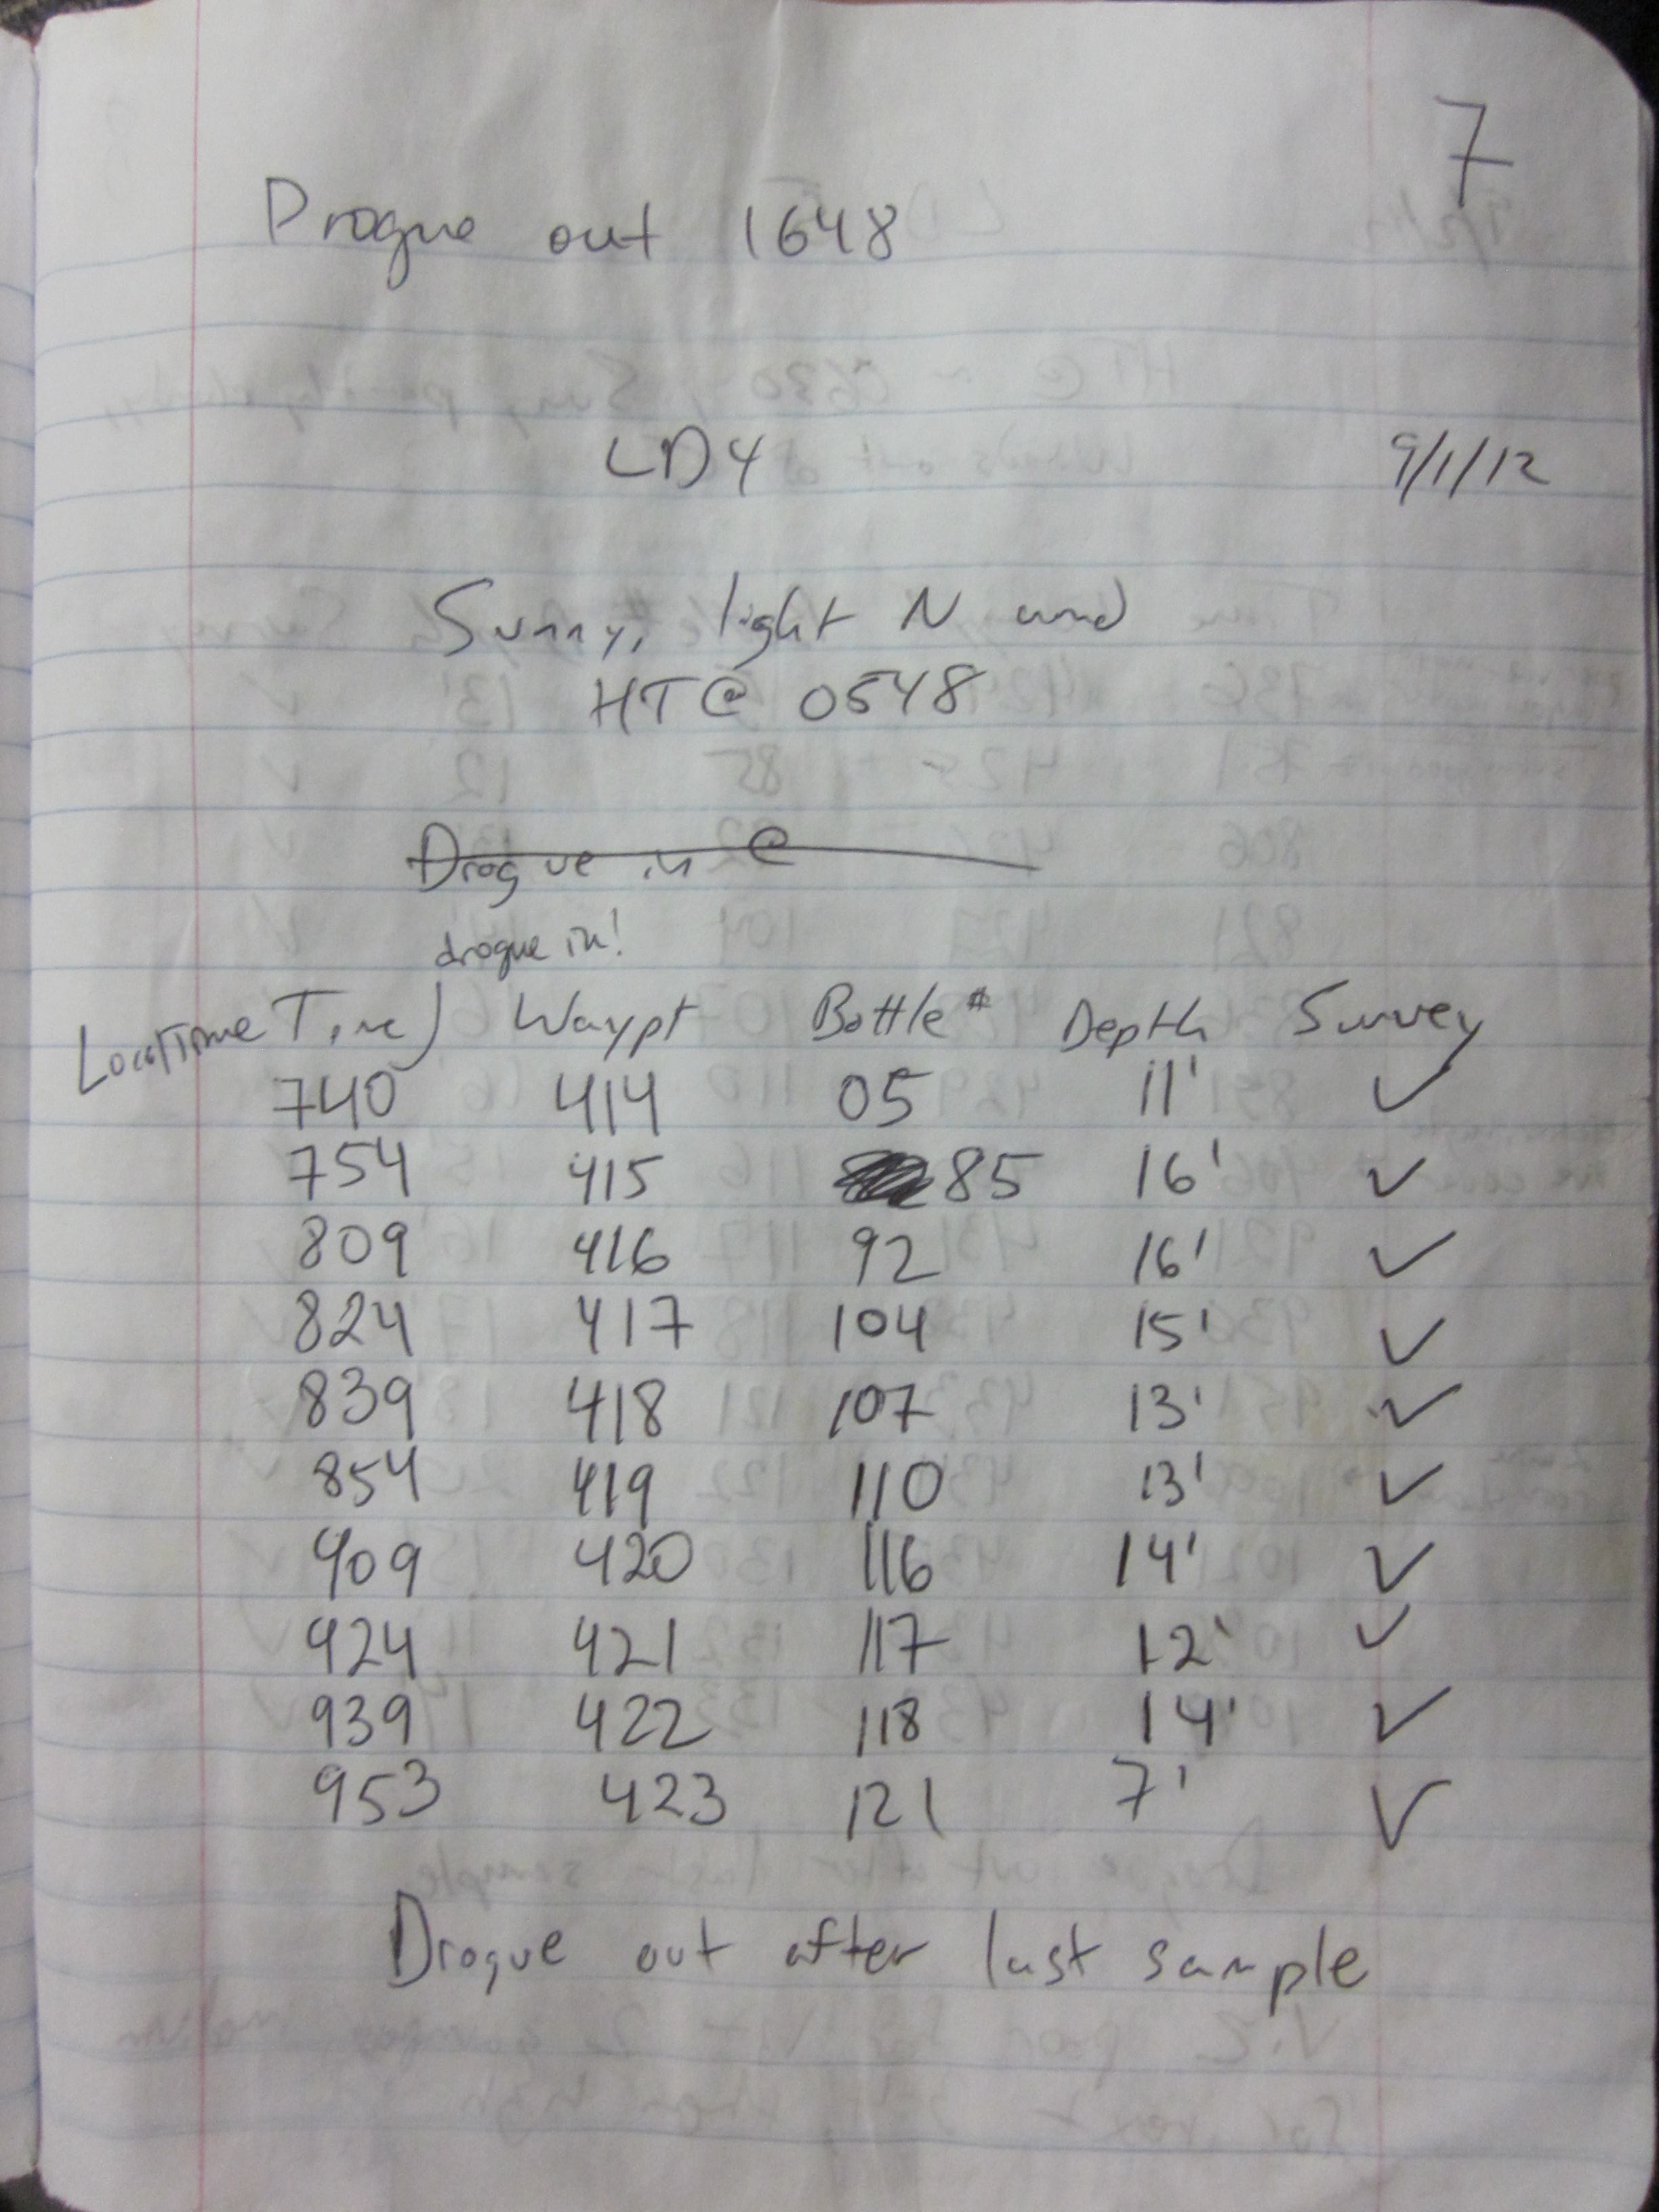 7
Drogue out 1648
LD4 9/1/12
Sunny, light N wind
HT @ 0548
Drogue in @
drogue in!
Local Time Time Waypt Bottle # Depth Survey
740 414 05 11' ✓
754 415 85 16' ✓
809 416 92 16' ✓
824 417 104 15' ✓
839 418 107 13' ✓
854 419 110 13' ✓
909 420 116 14' ✓
924 421 117 12' ✓
939 422 118 14' ✓
953 423 121 7' ✓
Drogue out after last sample